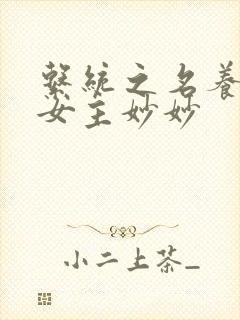 繫統之名養
女主妙妙
小二上茶_